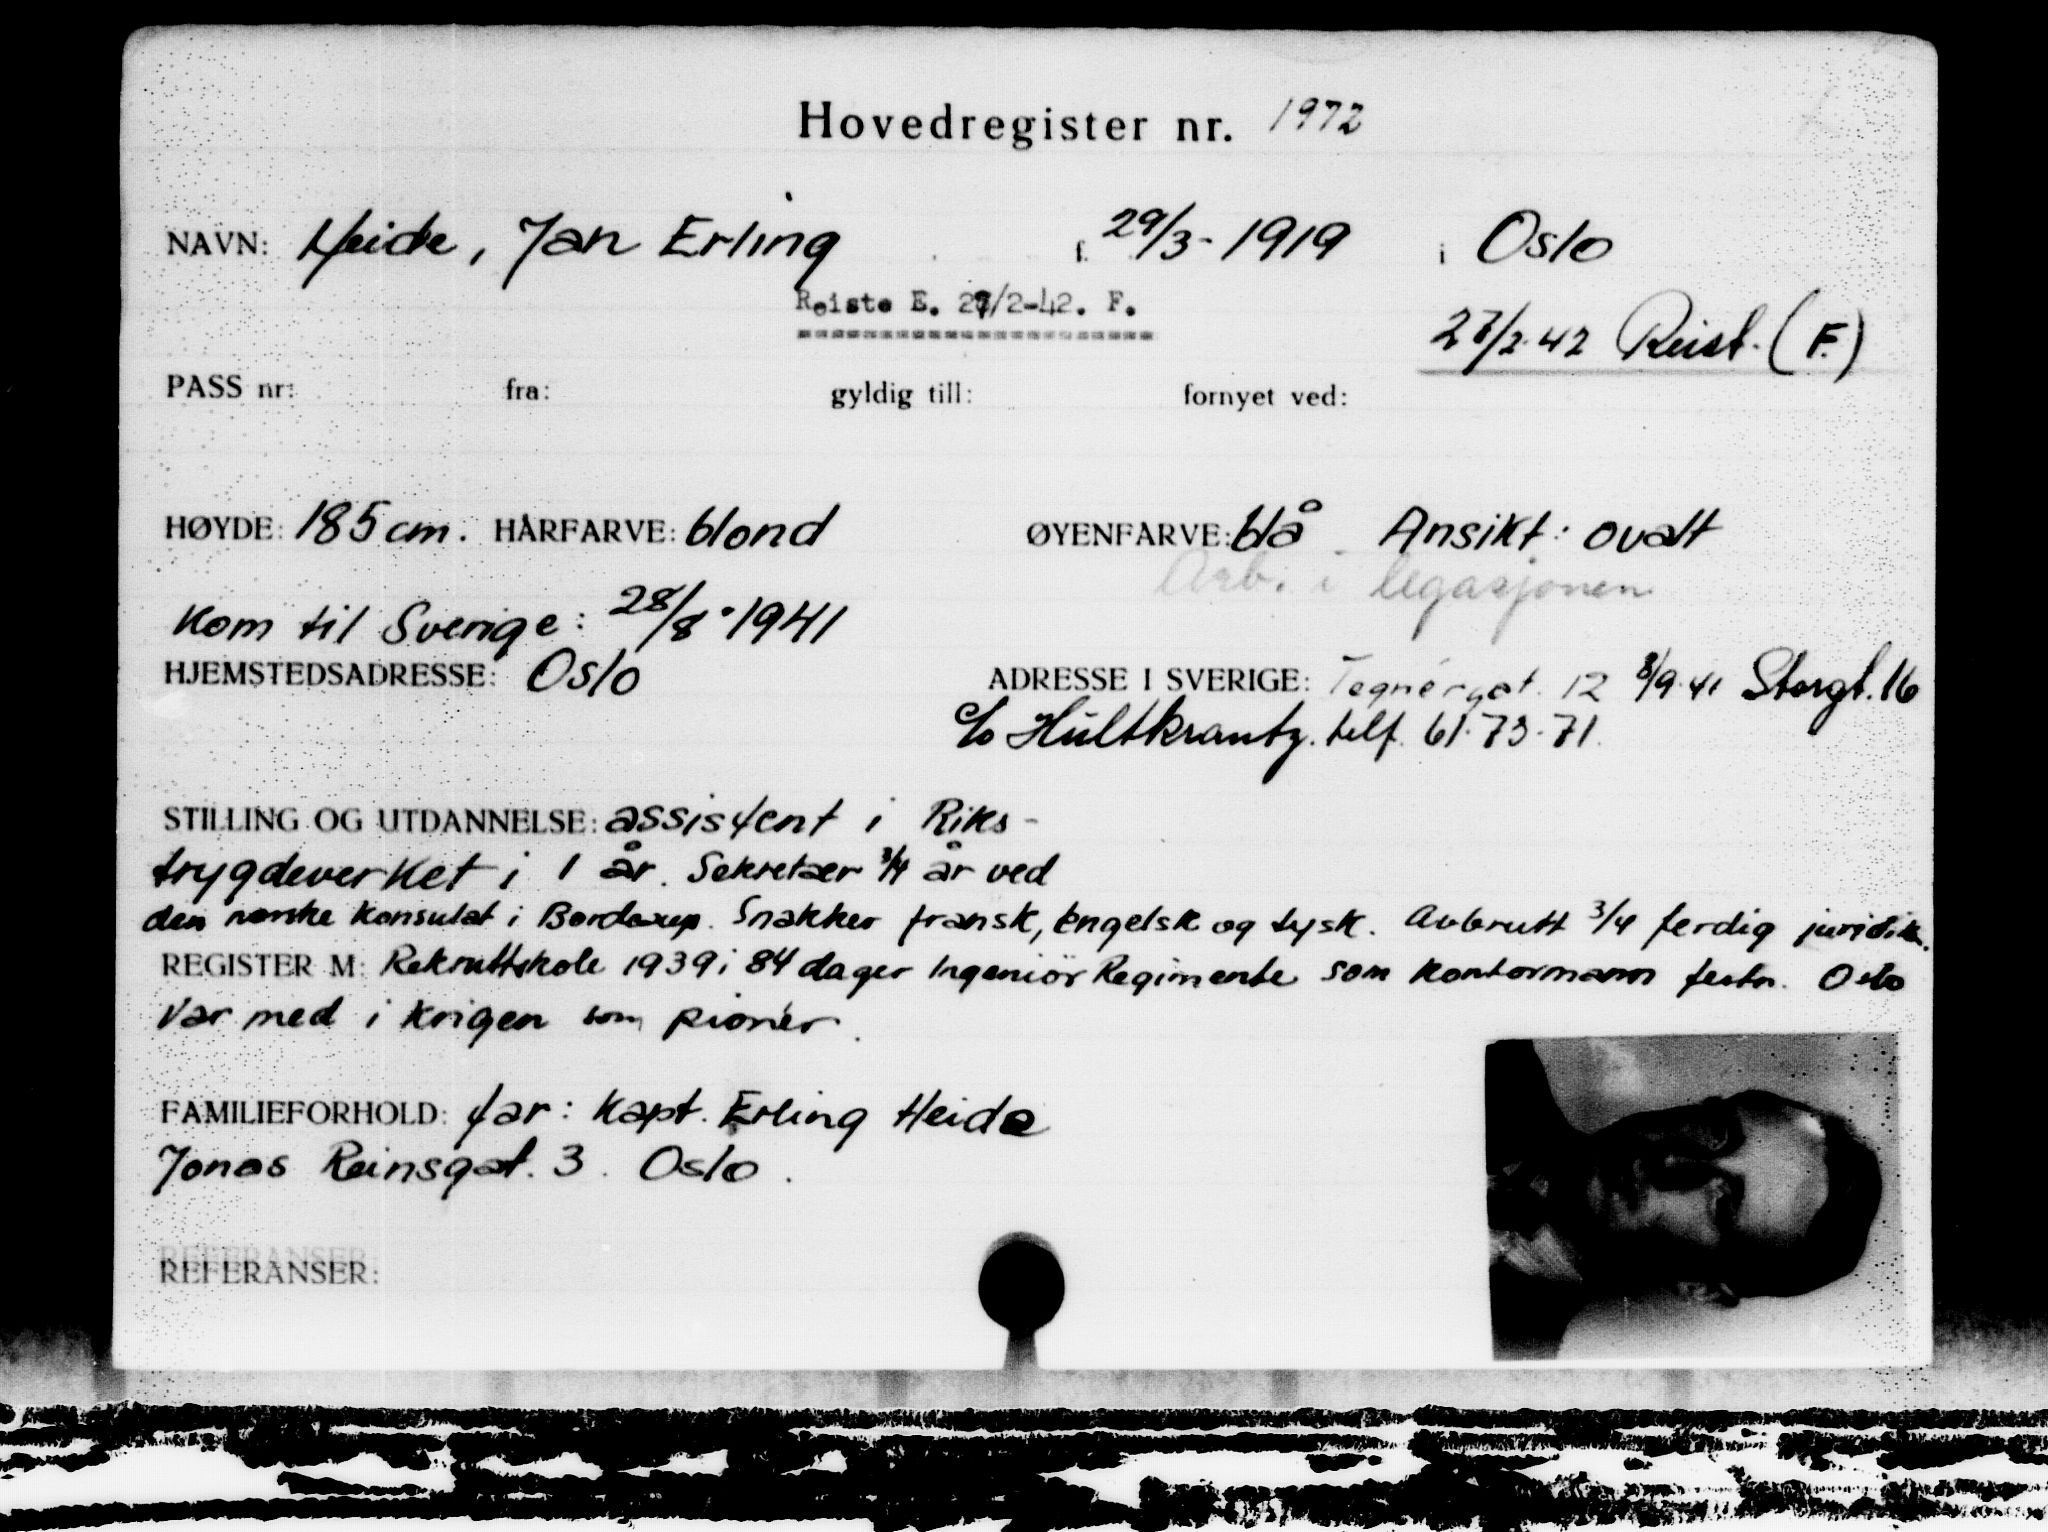 Hovedregister nr. 1972
NAVN: Heide, Jan Erling f. 29/3-1919 i Oslo
Reiste E. 27/2-42. F.
27/2-42 Reist. (F.)
PASS nr: fra: gyldig till: fornyet ved:
HØYDE: 185 cm. HÅRFARVE: blond ØYENFARVE: blå Ansikt: ovalt
Arb. i legasjonen
Kom til Sverige: 28/8-1941
HJEMSTEDSADRESSE: Oslo ADRESSE I SVERIGE: Tegnérgat. 12 8/9-41 Storgt. 16
c/o Hultkrantz. telf. 61-73-71.
STILLING OG UTDANNELSE: assistent i Riks-
trygdeverket i 1 år. Sekretær 3/4 år ved
den norske konsulat i Bordeaux. Snakker fransk, Engelsk og tysk. Avbrutt 3/4 ferdig juridik.
REGISTER M: Rekruttskole 1939 i 84 dager Ingeniör Regimente som kontormann Oslo
Var med i krigen som pionér.
FAMILIEFORHOLD: far: Kapt. Erling Heide
Jonas Reinsgat. 3. Oslo.
REFERANSER: